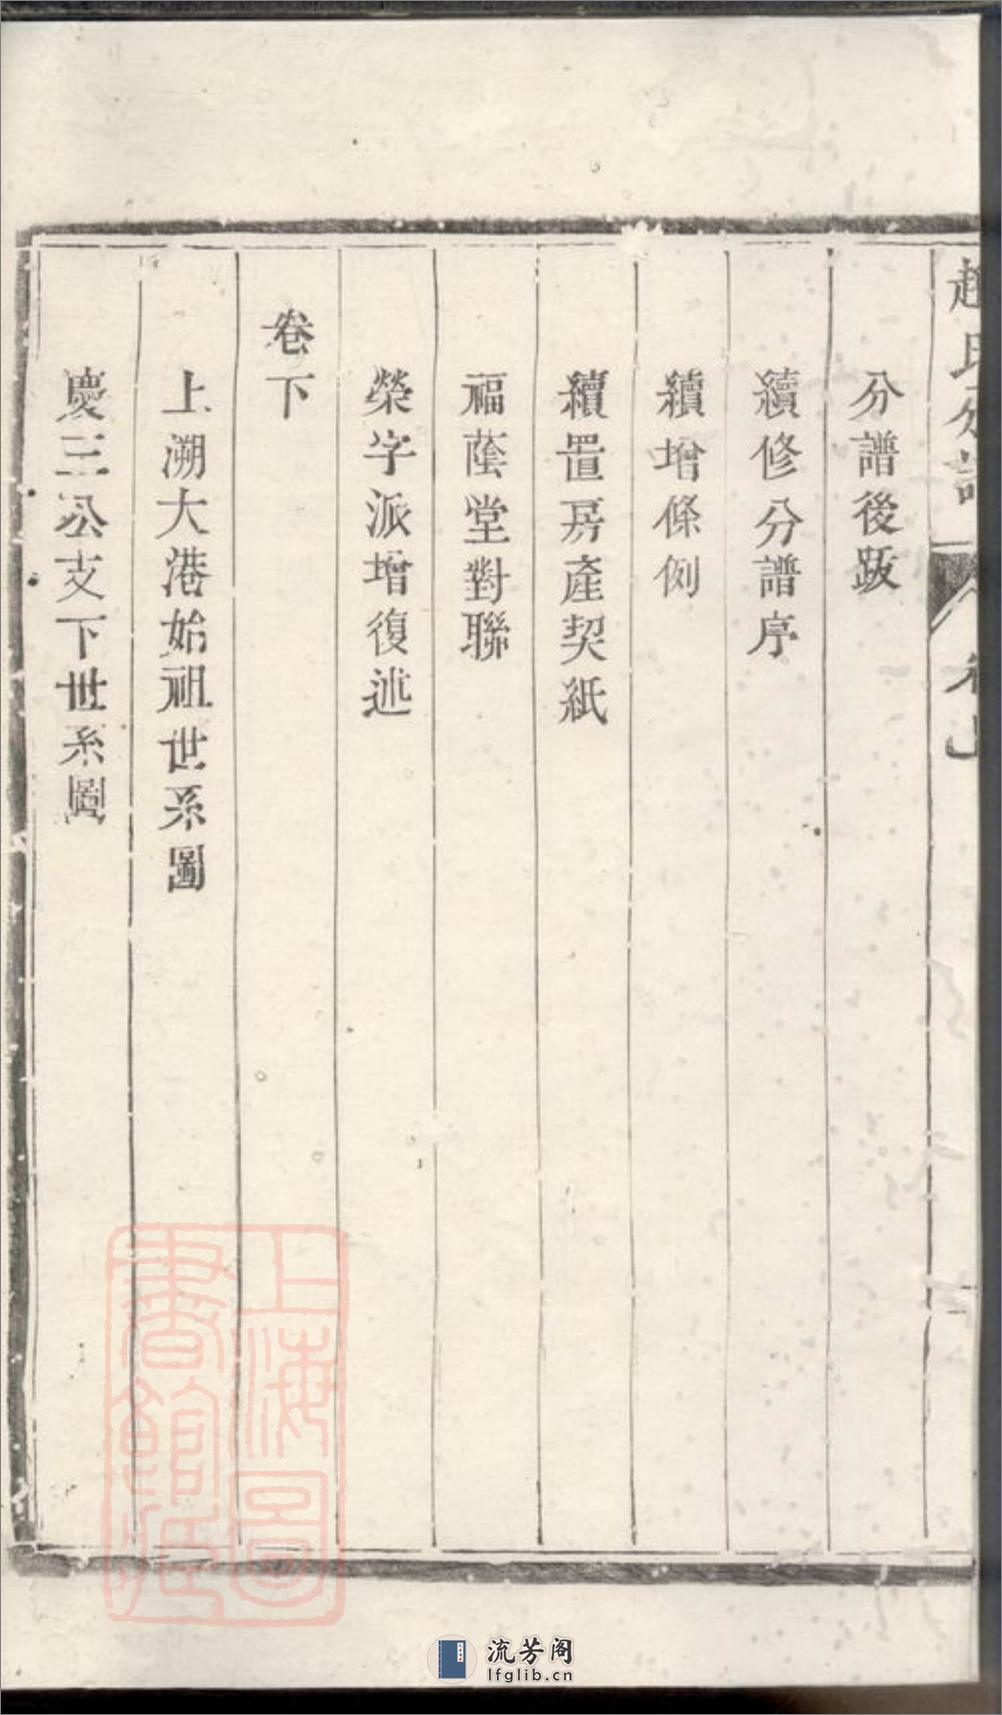 趙氏分譜 卷上
分譜後跋
續修分譜序
續增條例
續置房產契紙
福蔭堂對聯
榮字派增復述
卷下
上溯大港始祖世系圖
慶三公支下世系圖
上海圖書館藏
流芳阁
lfglib.cn